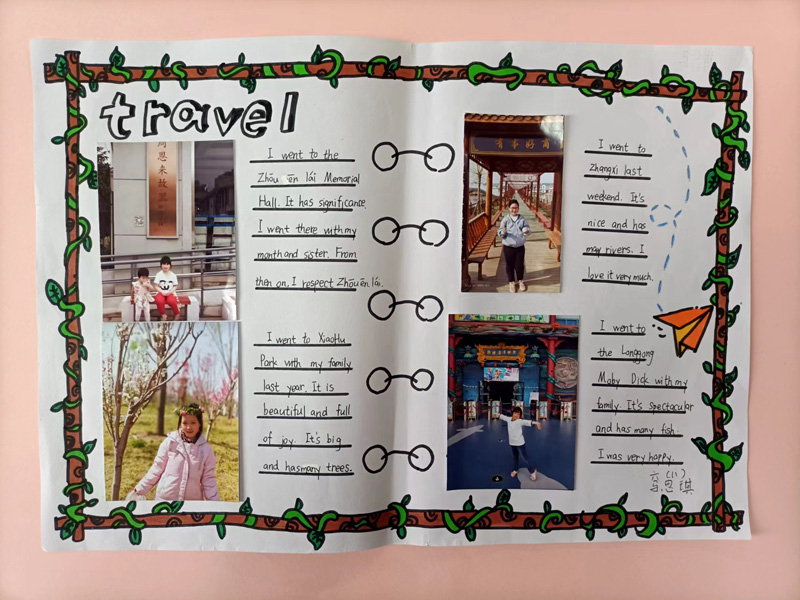 travel
I went to the
Zhōu ēn lái Memorial
Hall. It has significance.
I went there with my
month and sister. From
then on, I respect Zhōu ēn lái.
I went to XiaoHu
Park with my family
last year. It is
beautiful and full
of joy. It's big
and has many trees.
I went to
Zhangxi last
weekend. It's
nice and has
may rivers. I
love it very much.
I went to
the Longgong
Moby Dick with my
family. It's spectacular
and has many fish.
I was very happy.
周恩来故里
六(11)